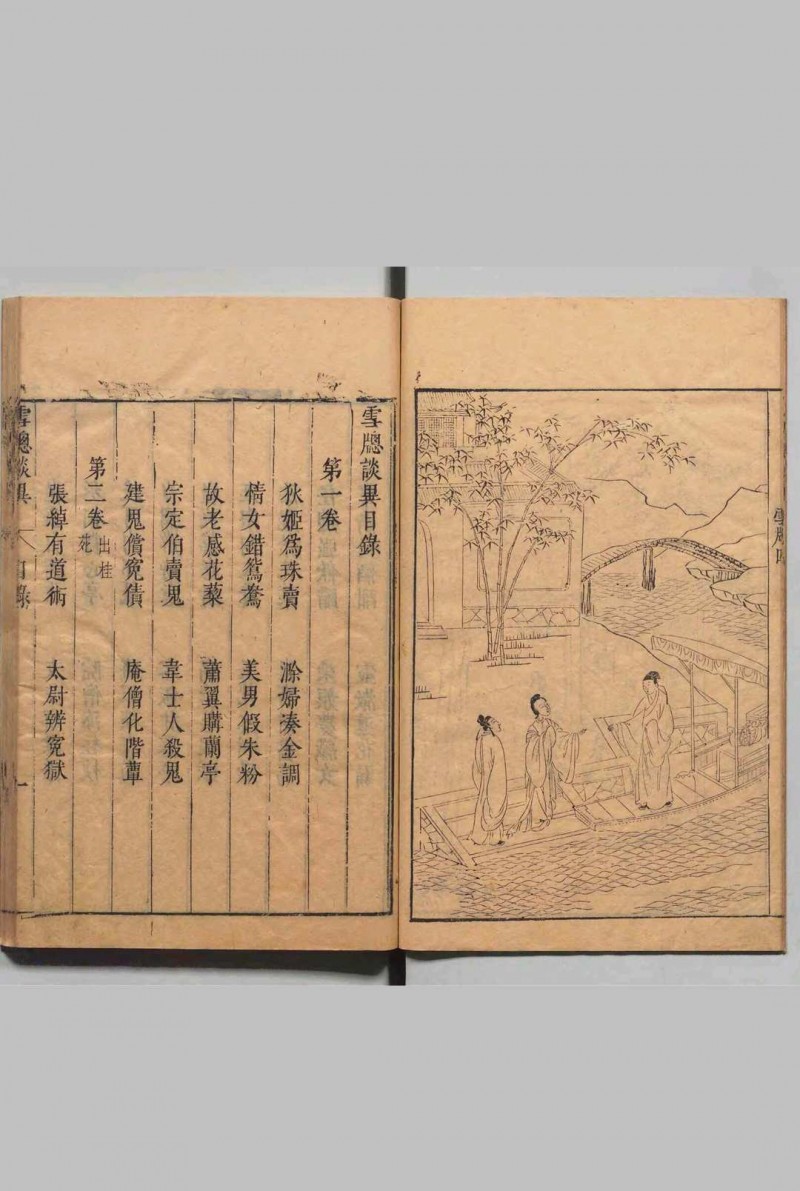 雪牕談異目錄
第一卷
狄姬爲珠賣　滁婦湊金調
情女錯鴛鴦　美男假朱粉
故老感花蘂　蕭翼購蘭亭
宗定伯賣鬼　韋士人殺鬼
建鬼償寃債　庵僧化階蕈
第二卷
張綽有道術　太尉辨寃獄
雪牕談異　目錄　一